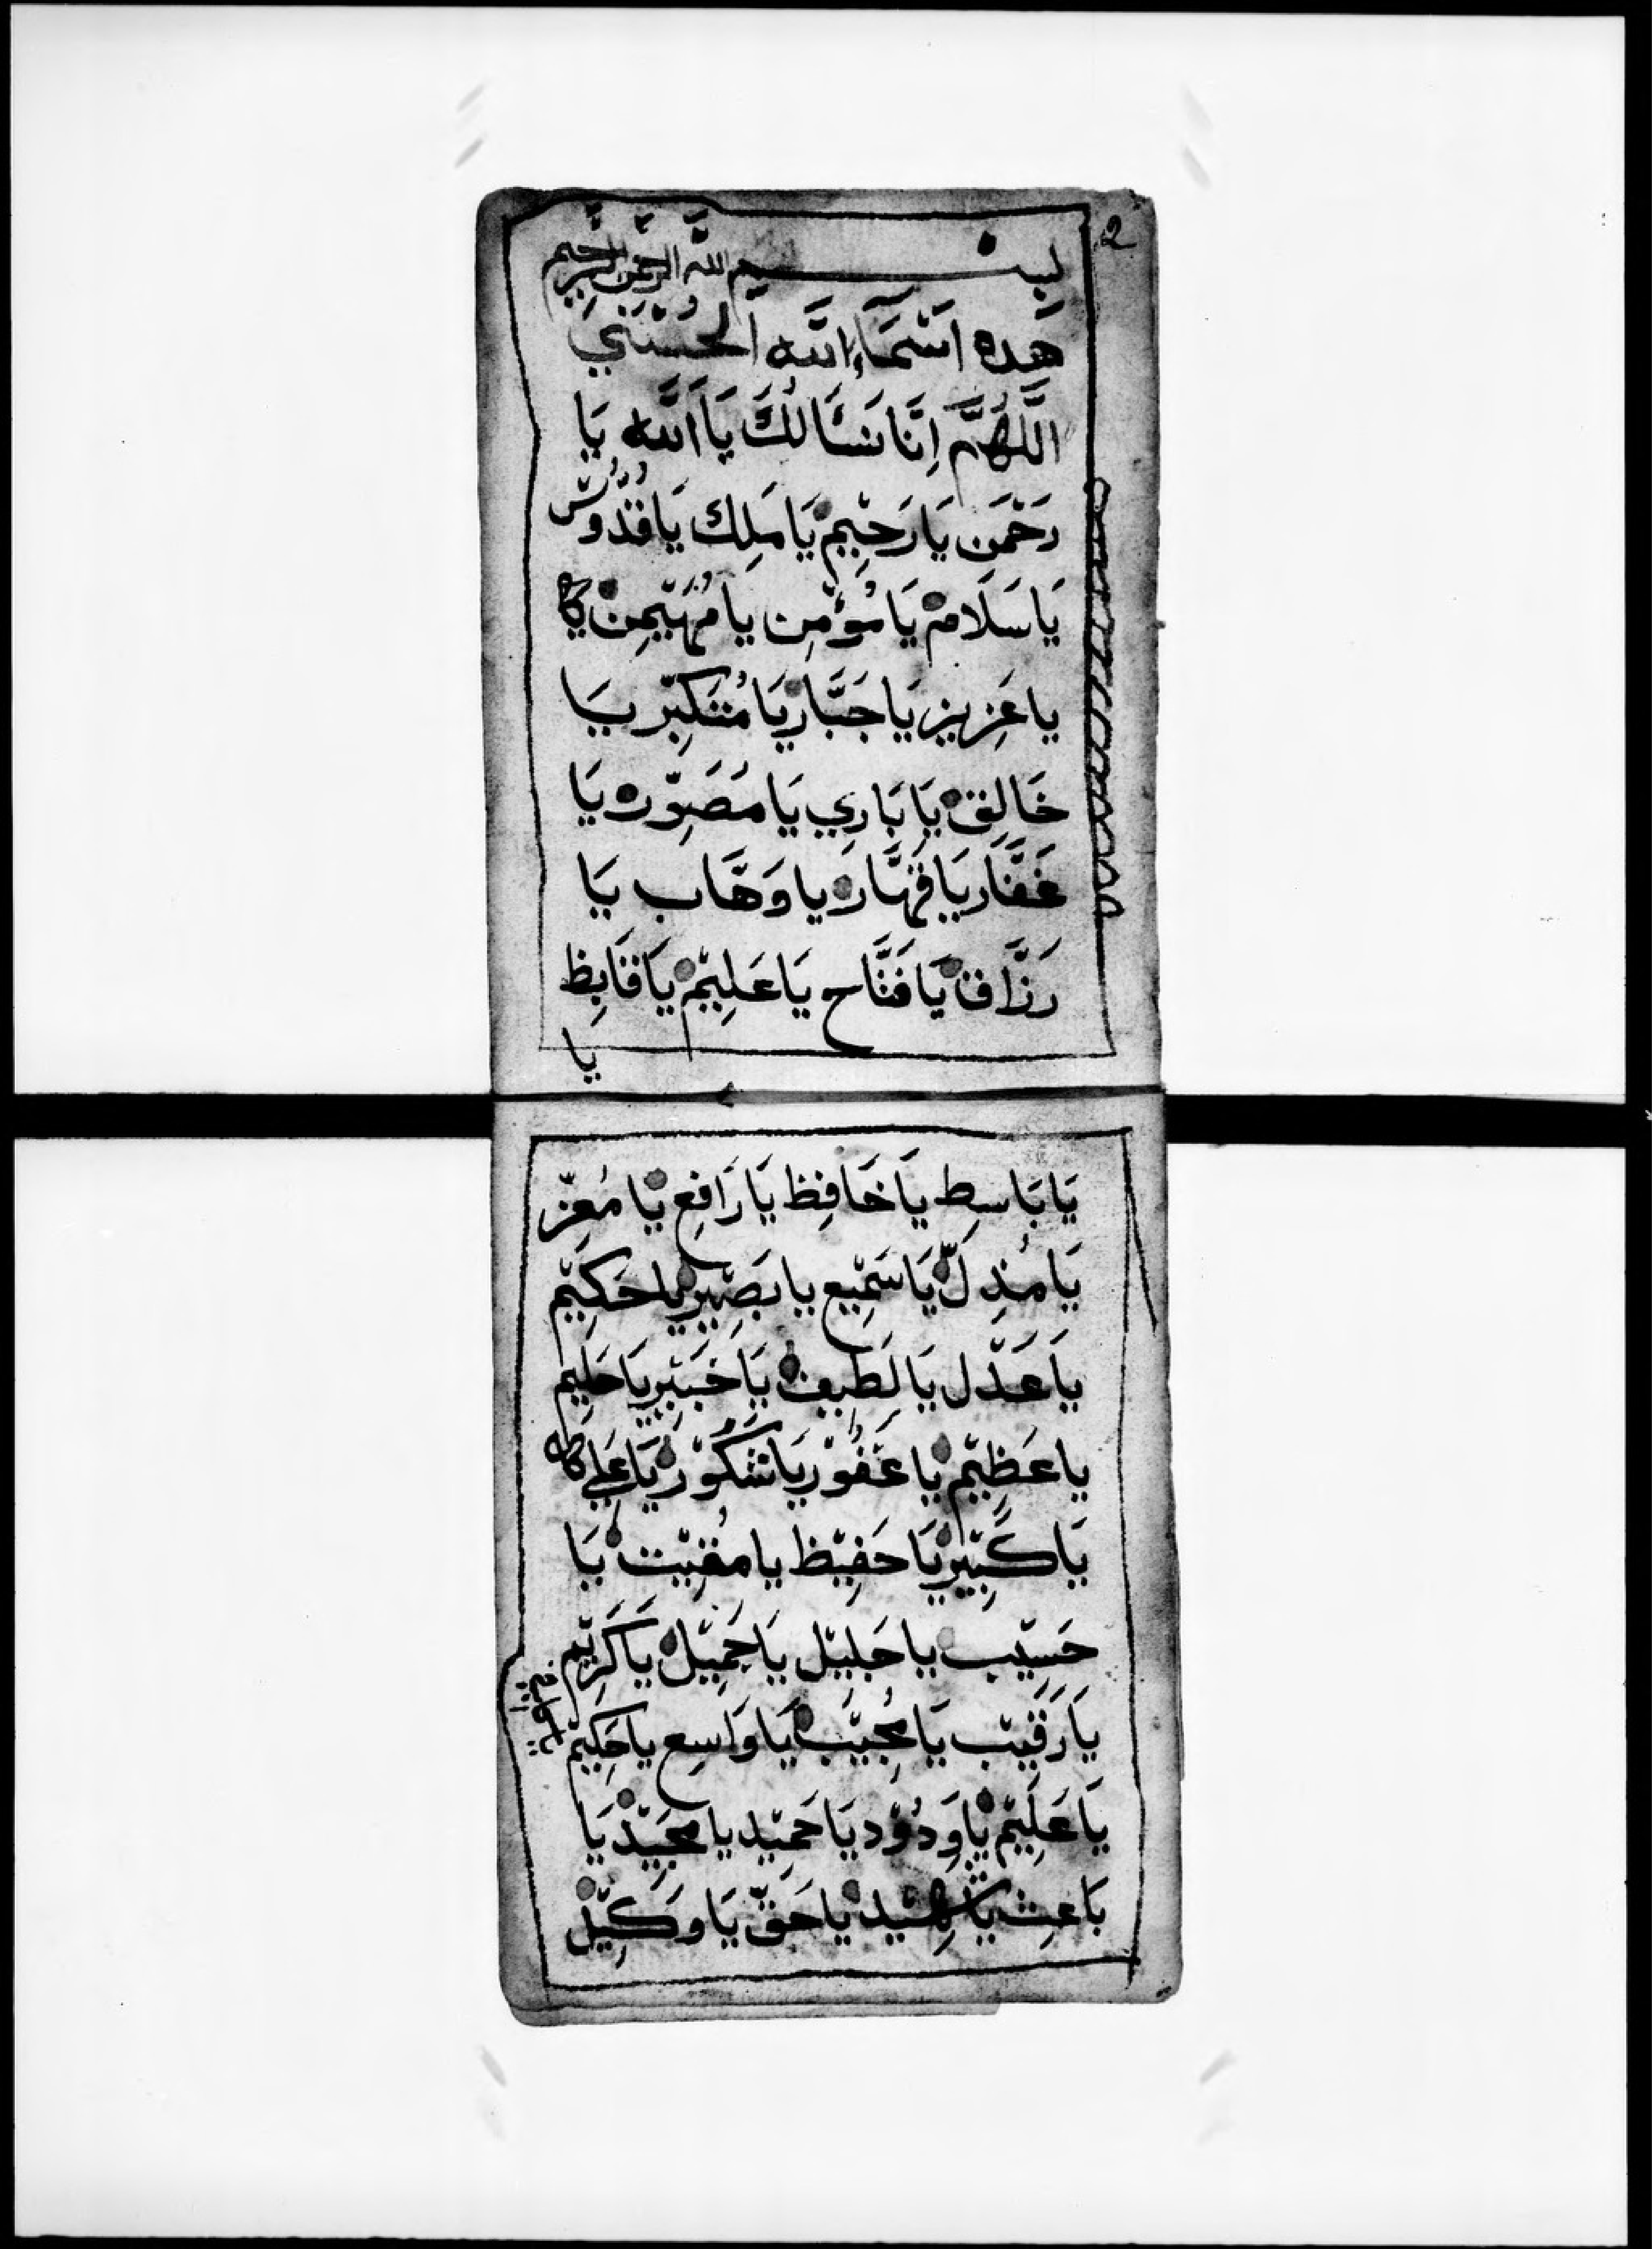 2
بسم الله الرحمن الرحيم
هَذِه اَسْمَآءِ اللَّه الحُسْنَي
اَللَّهُمَّ اِنَّا نَسْأَلُكَ يَا اَللَّه يَا
رَحْمَن يَا رَحِيم يَا مَلِك يَا قُدُّوْس
يَا سَلَام يَا مُؤْمِن يَا مُهَيْمِن
يا عَزِيز يَا جَبَّار يَا مُتَكَبِّر يَا
خَالِق يَا بَارِي يَا مُصَوِّر يَا
غَفَّار يَا قَهَّار يا وَهَّاب يَا
رَزَّاق يَا فَتَّاح يَا عَلِيْم يَا قَابِظ
يا
يَا بَاسِط يَا خَافِظ يَا رَافِع يَا مُعِزّ
يَا مُذِلّ يَا سَمِيْع يا بَصِيْر يا حَكِيْم
يَا عَدْل يَا لَطِيف يَا خَبِيْر يَا حَلِيْم
يا عَظِيْم يا غَفُوْر يَا شَكُوْر يَا عَلِي
يَا كَبِيْر يَا حَفِيْظ يا مُقِيْت يَا
حَسِيْب يا جَلِيْل يَا جَمِيْل يَا كَرِيْم
يَا رَقِيْب يَا مُجِيْب يَا وَاسِع يا حَكِيْم
يَا عَلِيْم يَا وَدُوْد يَا حَمِيْد يا مَجِيْد يَا
بَاعِث يَا شَهِيْد يا حَقّ يَا وَكِيْل